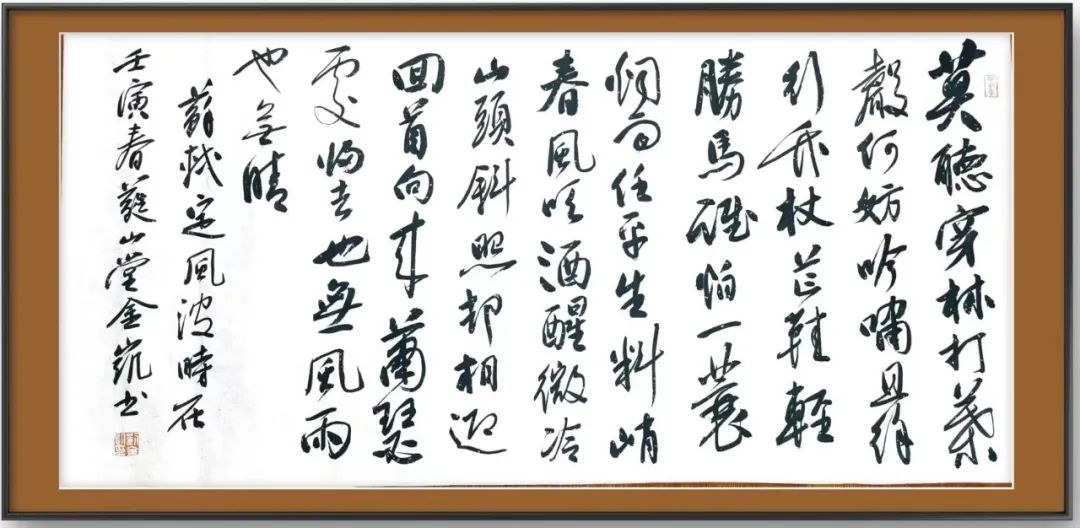 莫聽穿林打葉
聲何妨吟嘯且徐
行竹杖芒鞋輕
勝馬誰怕一蓑
烟雨任平生料峭
春風吹酒醒微冷
山頭斜照却相迎
回首向來蕭瑟
處歸去也無風雨
也无晴
蘇軾定風波時在
壬寅春山堂金凱书